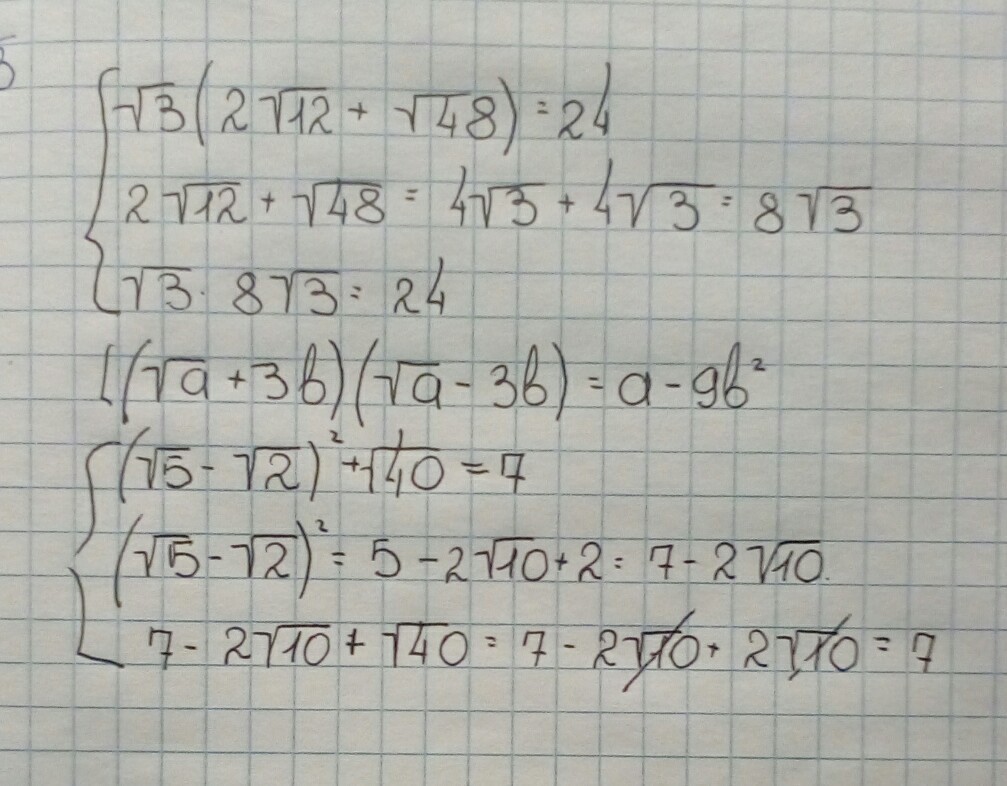 √3(2√12 + √48) = 24
2√12 + √48 = 4√3 + 4√3 = 8√3
√3 · 8√3 = 24
[(√a + 3b)(√a - 3b) = a - 9b²
(√5 - √2)² + √40 = 7
(√5 - √2)² = 5 - 2√10 + 2 = 7 - 2√10.
7 - 2√10 + √40 = 7 - 2√10 + 2√10 = 7